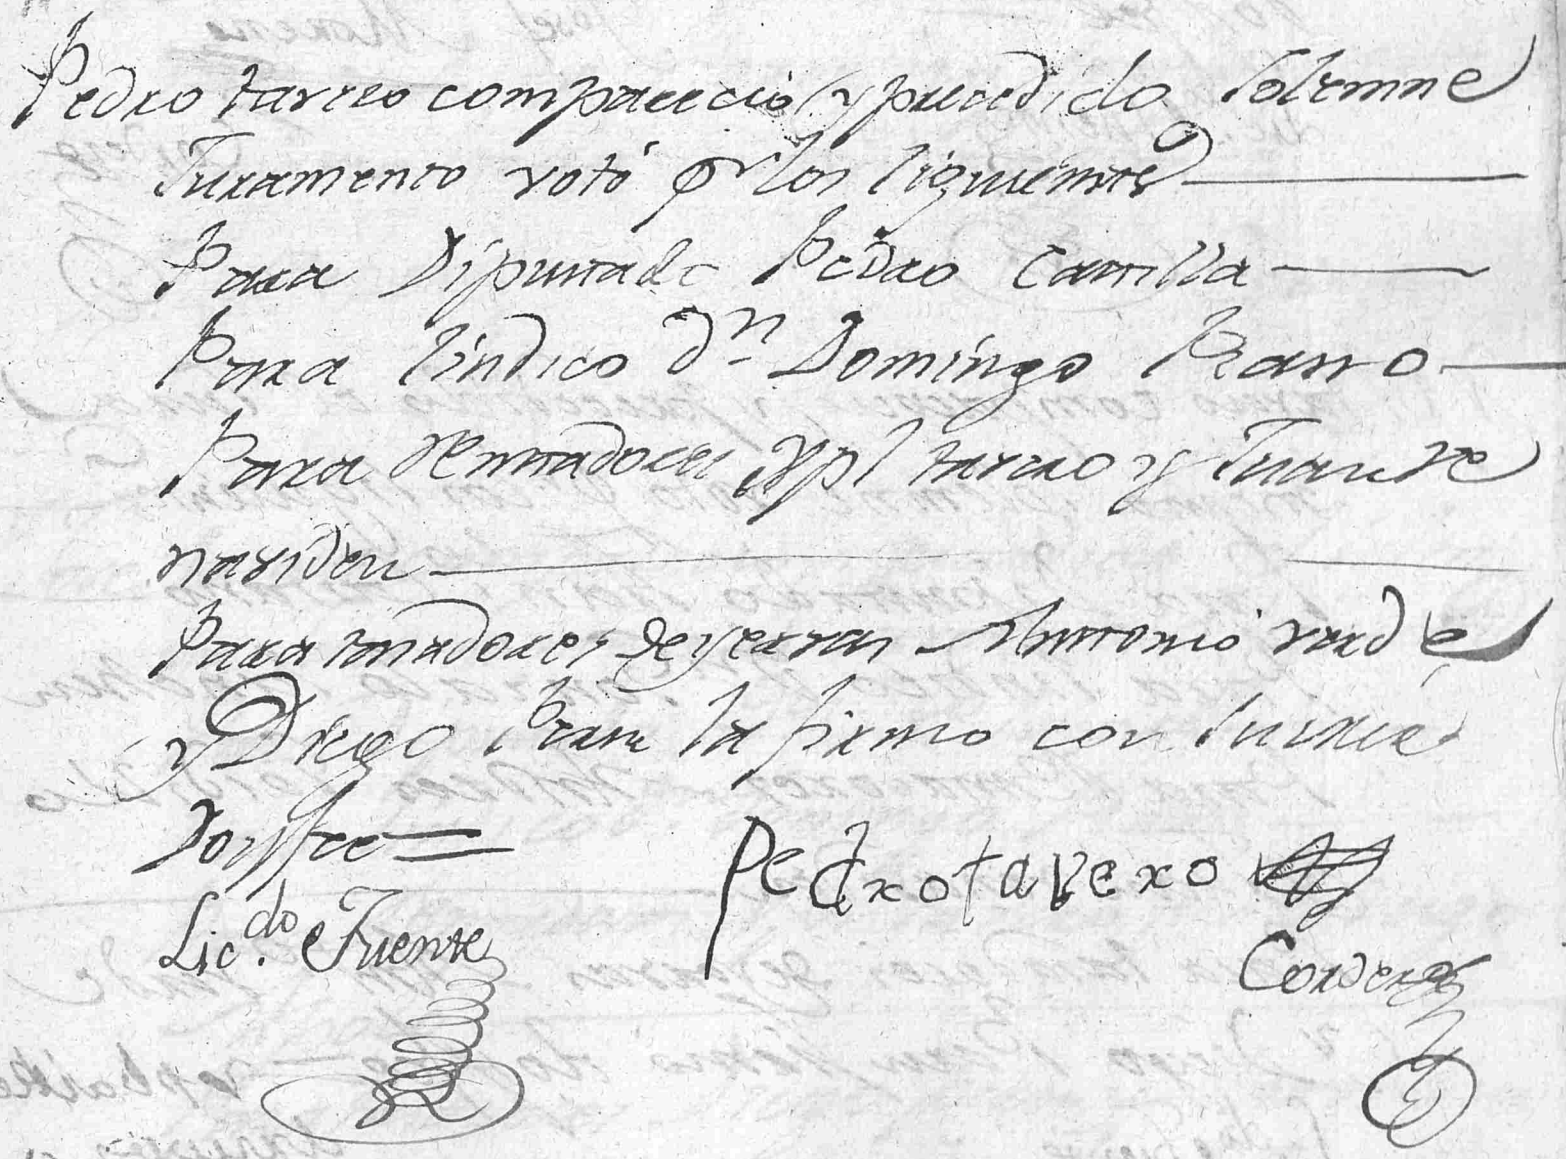 Pedro tavero compareció y precedido Solemne
Juramento votó pr los siguientes
Para Diputado Pedro Camilla
Para Sindico dn Domingo
Para Rentadores xpl tavero y Juan de
naviden
Para tasadores de yervas Antonio verde
y Diego la firmo con Sumrd
Doi ffee =
Licdo. Fuente
Pedro tavero
Cordero